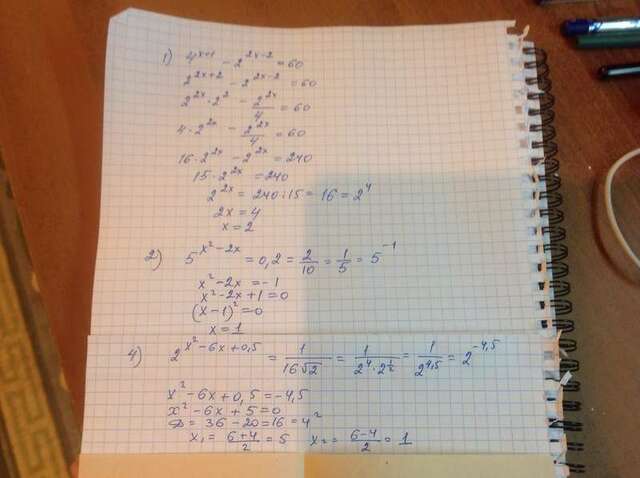 1) 4^(x+1) - 2^(2x-2) = 60
2^(2x+2) - 2^(2x-2) = 60
2^(2x) · 2^2 - 2^(2x)/4 = 60
4 · 2^(2x) - 2^(2x)/4 = 60
16 · 2^(2x) - 2^(2x) = 240
15 · 2^(2x) = 240
2^(2x) = 240 : 15 = 16 = 2^4
2x = 4
x = 2
2) 5^(x²-2x) = 0,2 = 2/10 = 1/5 = 5^(-1)
x² - 2x = -1
x² - 2x + 1 = 0
(x-1)² = 0
x = 1
4) 2^(x²-6x+0,5) = 1/(16√2) = 1/(2^4 · 2^(1/2)) = 1/2^(4,5) = 2^(-4,5)
x² - 6x + 0,5 = -4,5
x² - 6x + 5 = 0
D = 36 - 20 = 16 = 4²
x₁ = (6+4)/2 = 5 x₂ = (6-4)/2 = 1